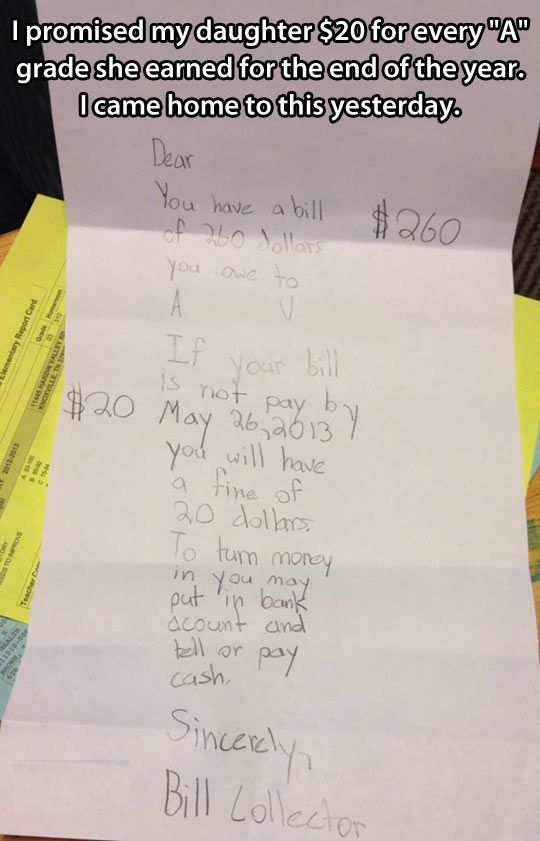 I promised my daughter $20 for every "A"
grade she earned for the end of the year.
I came home to this yesterday.
Dear
You have a bill
$260
of 260 dollars
you owe to
A V
If your bill
is not pay by
$20
May 26,2013
you will have
a fine of
20 dollars.
To turn money
in you may
put in bank
acount and
tell or pay
cash.
Sincerely,
Bill Collector
Elementary Report Card
Grade Homeroom
03 310
11445 HARDIN VALLEY RD
KNOXVILLE, TN
2012-2013
A 93-100
B 85-92
C 75-84
NEEDS TO IMPROVE
Teacher